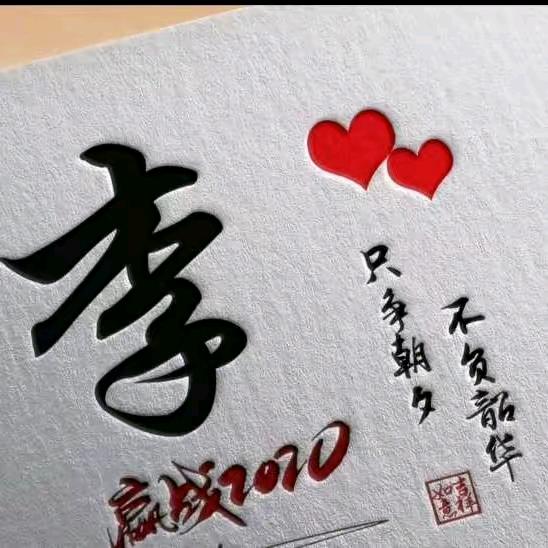 李
只争朝夕
不负韶华
赢战2020
吉祥
如意